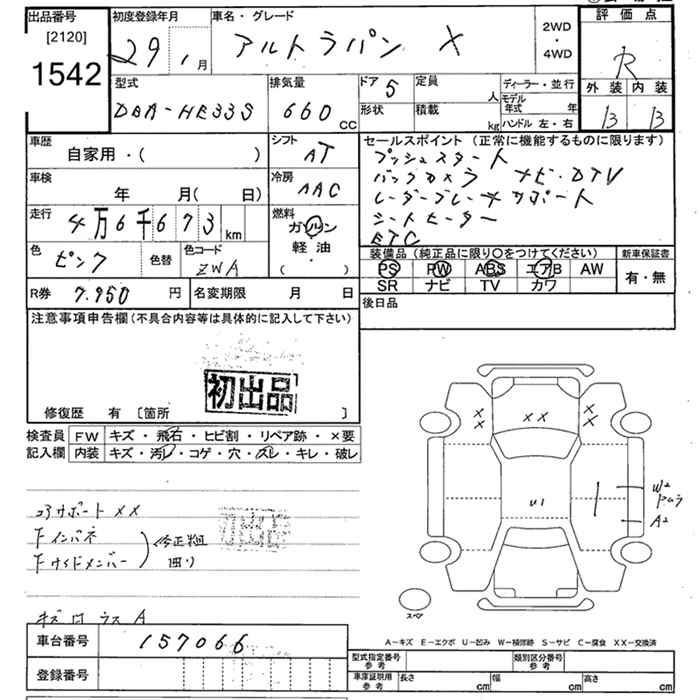 出品番号 [2120] 1542
初度登録年月 29年 1月
車名・グレード アルトラパン X
2WD・4WD
評価点 R
外装 B 内装 B
型式 DBA-HE33S
排気量 660 CC
ドア 5
形状
定員 人
積載 kg
ディーラー・並行
モデル年式 年
ハンドル 左・右
車歴 自家用・( )
シフト AT
車検 年 月( 日)
冷房 AAC
走行 4万6千673 km
燃料 ガソリン 軽油・( )
色 ピンク 色替
色コード ZWA
R券 7,950 円
名変期限 月 日
セールスポイント(正常に機能するものに限ります)
プッシュスタート
バックカメラ ナビ・DTV
レーダーブレーキサポート
シートヒーター
ETC
装備品(純正品に限り〇をつけてください)
新車保証書 有・無
PS PW ABS エアB AW
SR ナビ TV カワ
後日品
注意事項申告欄(不具合内容等は具体的に記入して下さい)
初出品
修復歴 有 [箇所 ]
検査員記入欄
FW キズ・飛石・ヒビ割・リペア跡・×要
内装 キズ・汚レ・コゲ・穴・スレ・キレ・破レ
コアサポートXX
Fインパネ
Fサイドメンバー
修正 曲り
キズ ラス A
XX XX XX
U1
W2
A2
スペア
A-キズ E-エクボ U-凹み W-補修跡 S-サビ C-腐食 XX-交換済
車台番号 157066
登録番号
型式指定番号 参考
類別区分番号 参考
車庫証明用 参考 長さ cm 幅 cm 高さ cm